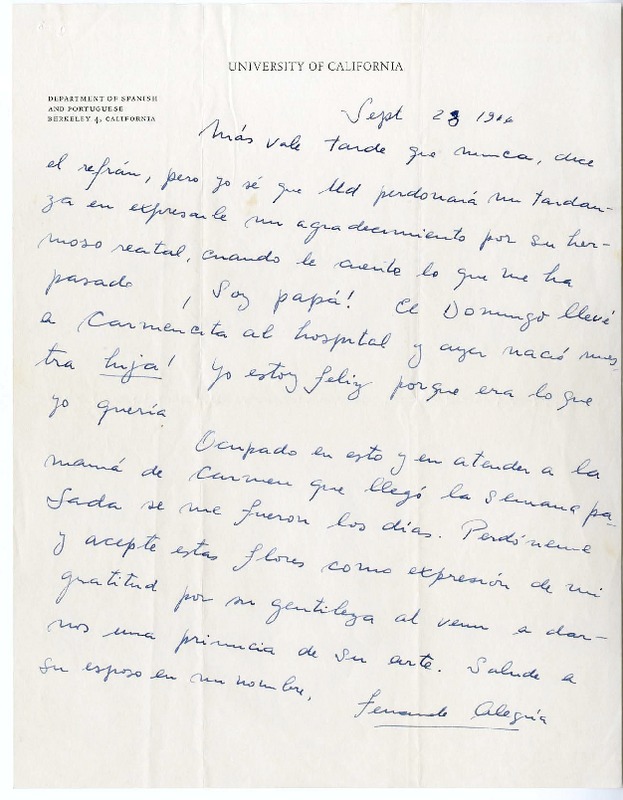 UNIVERSITY OF CALIFORNIA
DEPARTMENT OF SPANISH
AND PORTUGUESE
BERKELEY 4, CALIFORNIA
Sept 23
Más vale tarde que nunca, dice
el refrán, pero yo sé que Ud perdonará mi tardan-
za en expresarle mi agradecimiento por su her-
moso recital, cuando le cuente lo que me ha
pasado ¡Soy papá! El Domingo llevé
a Carmencita al hospital y ayer nació nues-
tra hija! Yo estoy feliz porque era lo que
yo quería
Ocupado en esto y en atender a la
mamá de Carmen que llegó la semana pa-
sada se me fueron los días. Perdóneme
y acepte estas flores como expresión de mi
gratitud por su gentileza al venir a dar-
nos una primicia de su arte. Salude a
su esposo en mi nombre,
Fernando Alegría